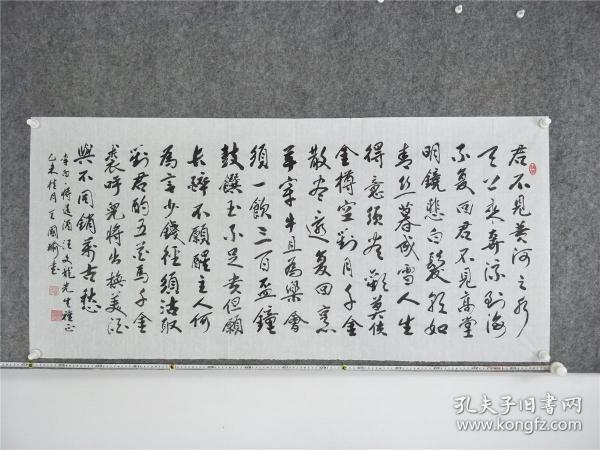 君不見黃河之水
天上來奔流到海
不复回君不見高堂
明鏡悲白髮朝如
青絲暮成雪人生
得意須盡歡莫使
金樽空對月千金
散盡還复回烹
羊宰牛且為樂會
須一飲三百盃鐘
鼓饌玉不足貴但願
長醉不願醒主人何
為言少錢徑須沽取
對君酌五花馬千金
裘呼兒將出換美酒
與不同銷萬古愁
李白·將進酒 汪文龍先生雅正
乙未桂月 國瑜書
孔夫子旧书网